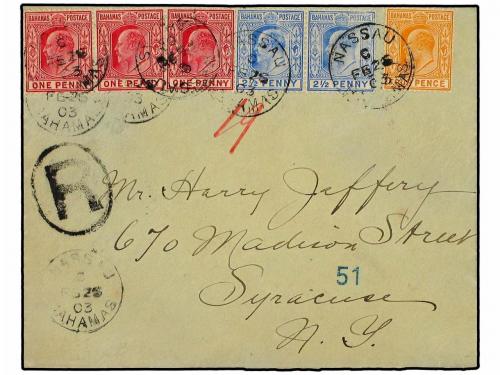 BAHAMAS POSTAGE BAHAMAS POSTAGE BAHAMAS POSTAGE BAHAMAS POSTAGE BAHAMAS POSTAGE BAHAMAS POSTAGE
ONE PENNY ONE PENNY ONE PENNY 2½ PENNY 2½ PENNY PENCE
NASSAU
C
FE 25
03
BAHAMAS
R
Mr. Harry Jaffery
670 Madison Street
51
Syracuse
N. Y.
NASSAU
C
FE 25
03
BAHAMAS